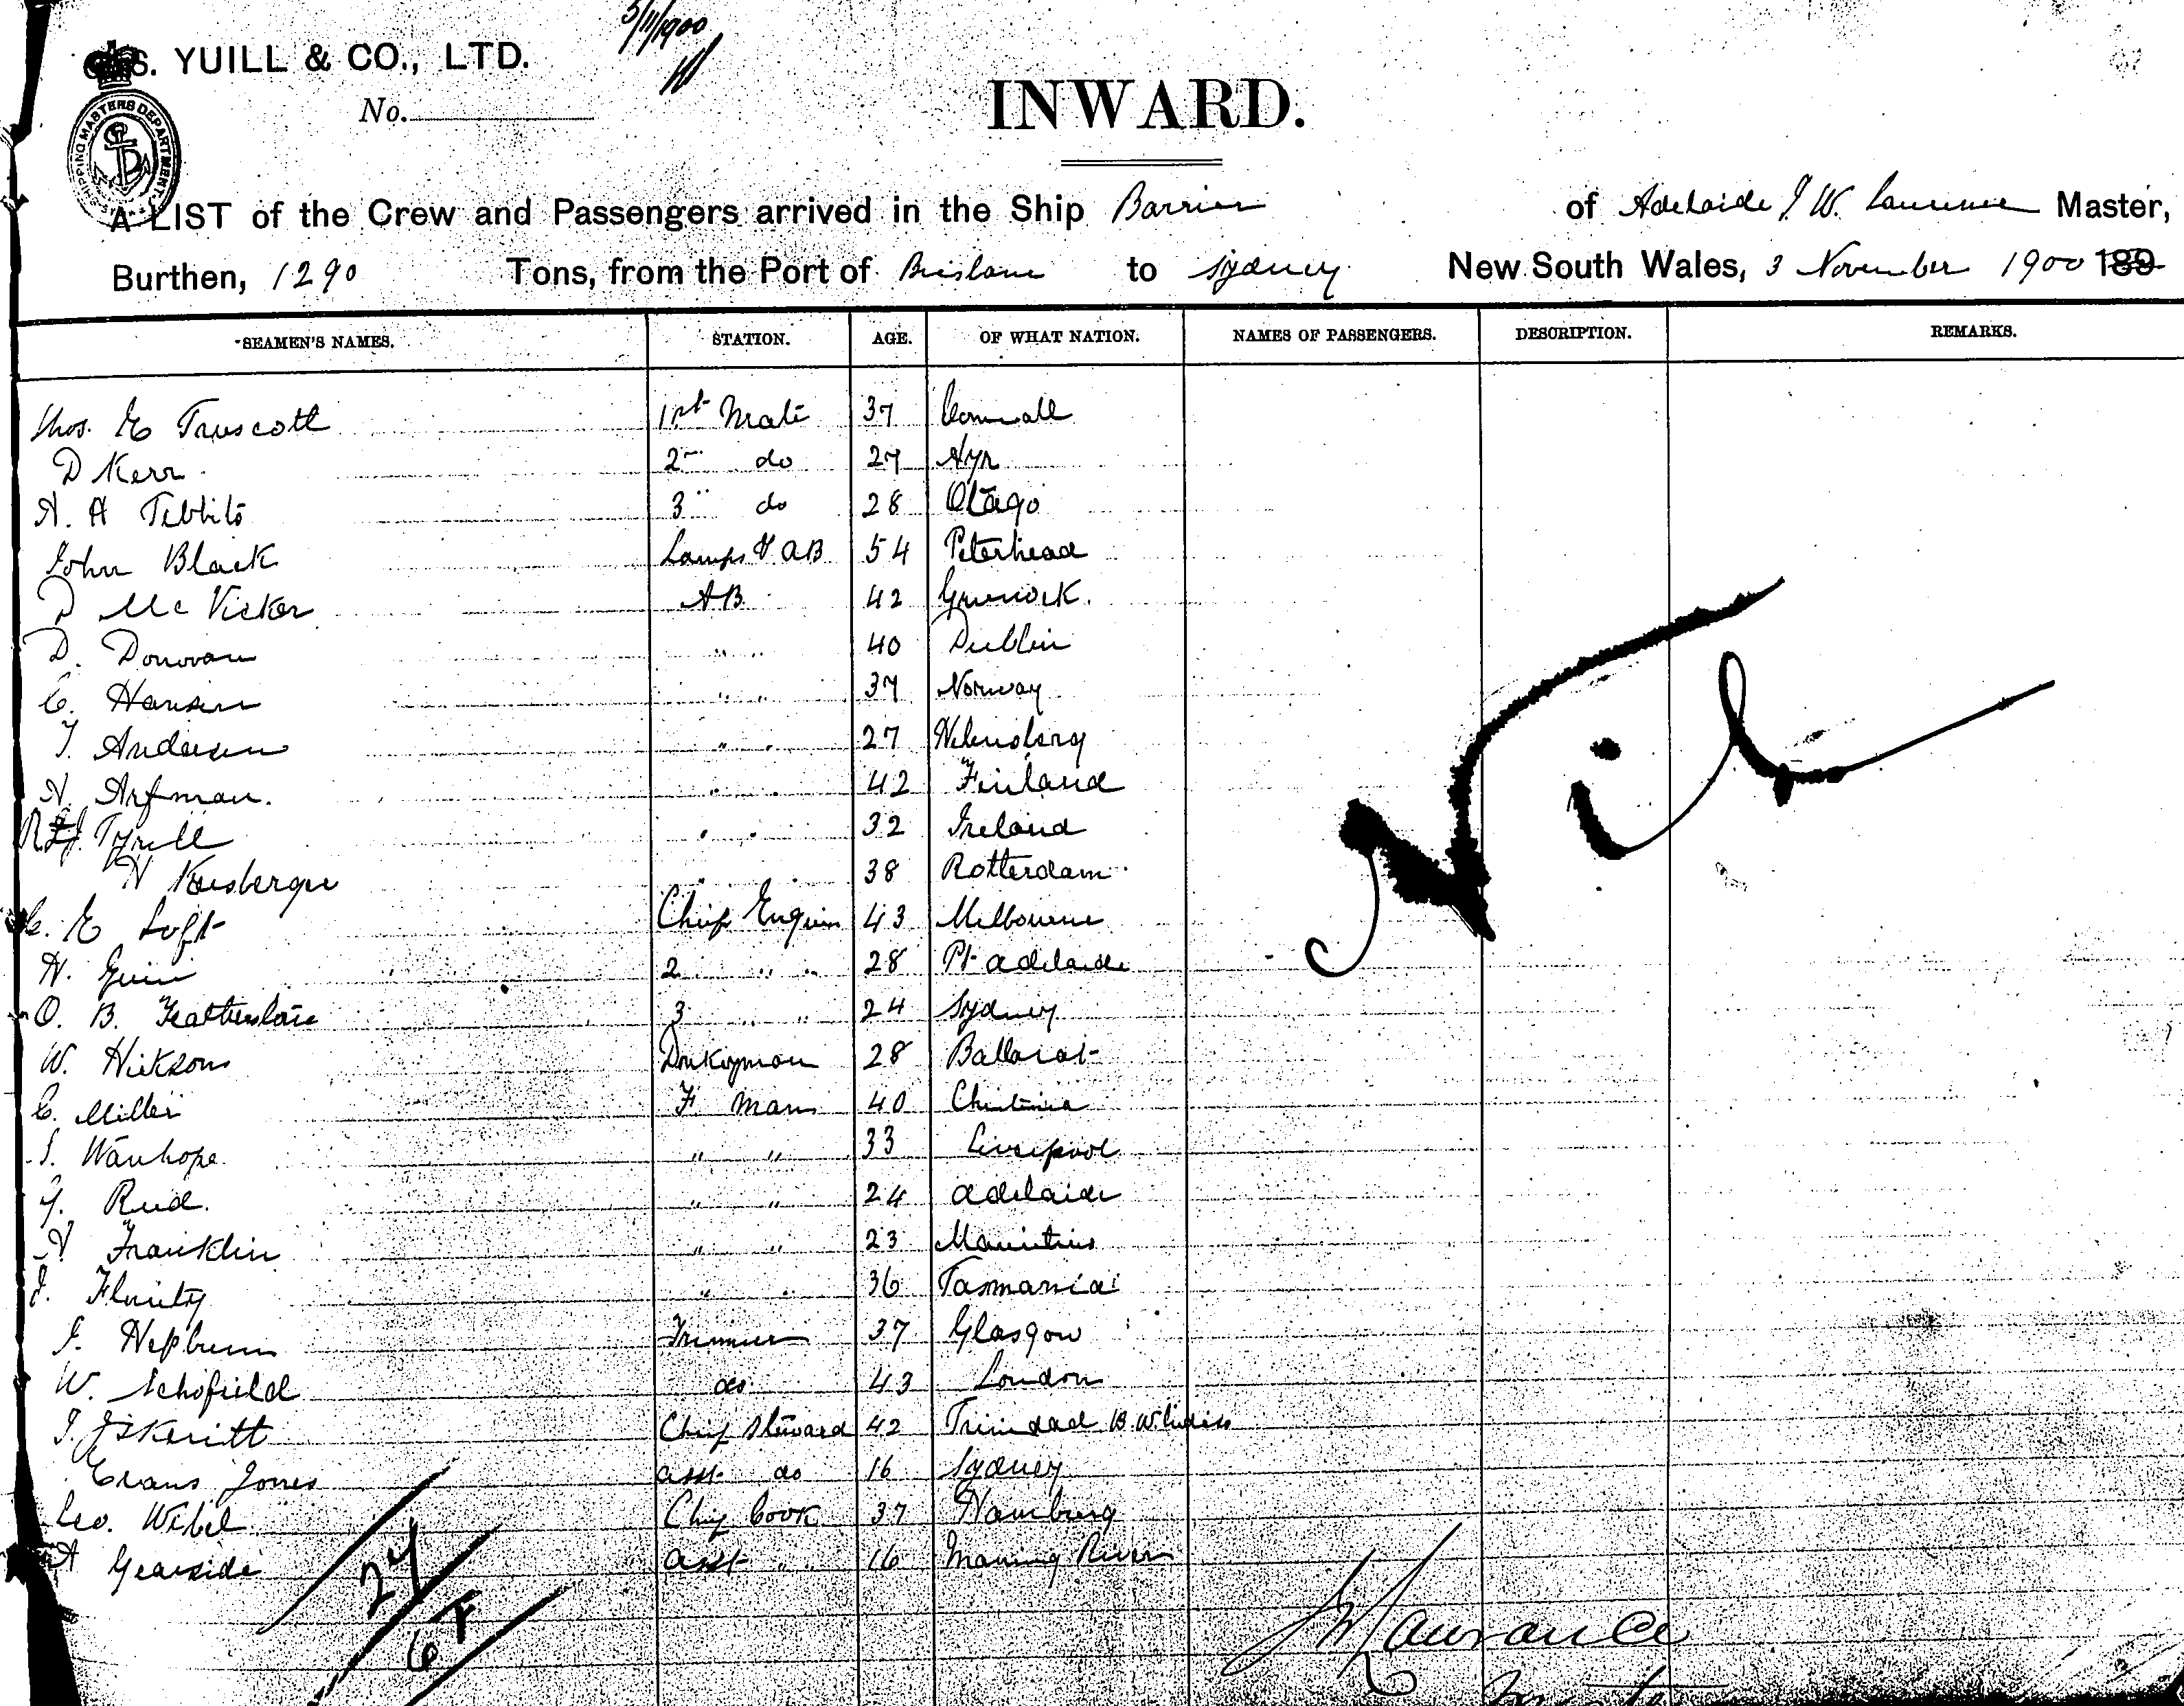 5/11/1900
S. YUILL & CO., LTD.
No.
INWARD.
SHIPPING MASTERS DEPARTMENT
A LIST of the Crew and Passengers arrived in the Ship Barrier of Adelaide J. W. Laurence Master,
Burthen, 1290 Tons, from the Port of Brisbane to Sydney New South Wales, 3 November 1900 189
SEAMEN'S NAMES. STATION. AGE. OF WHAT NATION. NAMES OF PASSENGERS. DESCRIPTION. REMARKS.
Thos. E Truscott 1st Mate 37 Cornwall
D Kerr 2 do 27 Ayr
A. H Tibbits 3 do 28 Otago
John Black Lamps & AB 54 Peterhead
D McVicker AB 42 Greenock.
D. Donovan " " 40 Dublin
C. Hansen " " 37 Norway
T. Andersen " " 27
A. Arfman. " " 42 Finland
Tyrell " " 32 Ireland
H " " 38 Rotterdam
C. E Luft Chief Engin 43 Melbourne
H. 2 " " 28 Pt Adelaide
O. B. Featherstone 3 " " 24 Sydney
W. Hickson Donkeyman 28 Ballarat
C. Miller F Man 40
S. Wauhope " " 33 Liverpool
G. Reid. " " 24 Adelaide
A Franklin " " 23 Mauritius
J. " " 36 Tasmania
J. Hepburn Trimmer 37 Glasgow
W. Schofield do 43 London
J. Skeritt Chief Steward 42 Trinidad B. W Indies
Evans Jones asst do 16 Sydney
Geo. Wibel Chief Cook 37 Hamburg
A Gearside asst " 16 Maning River
Nil
24
6 F
JW Laurance